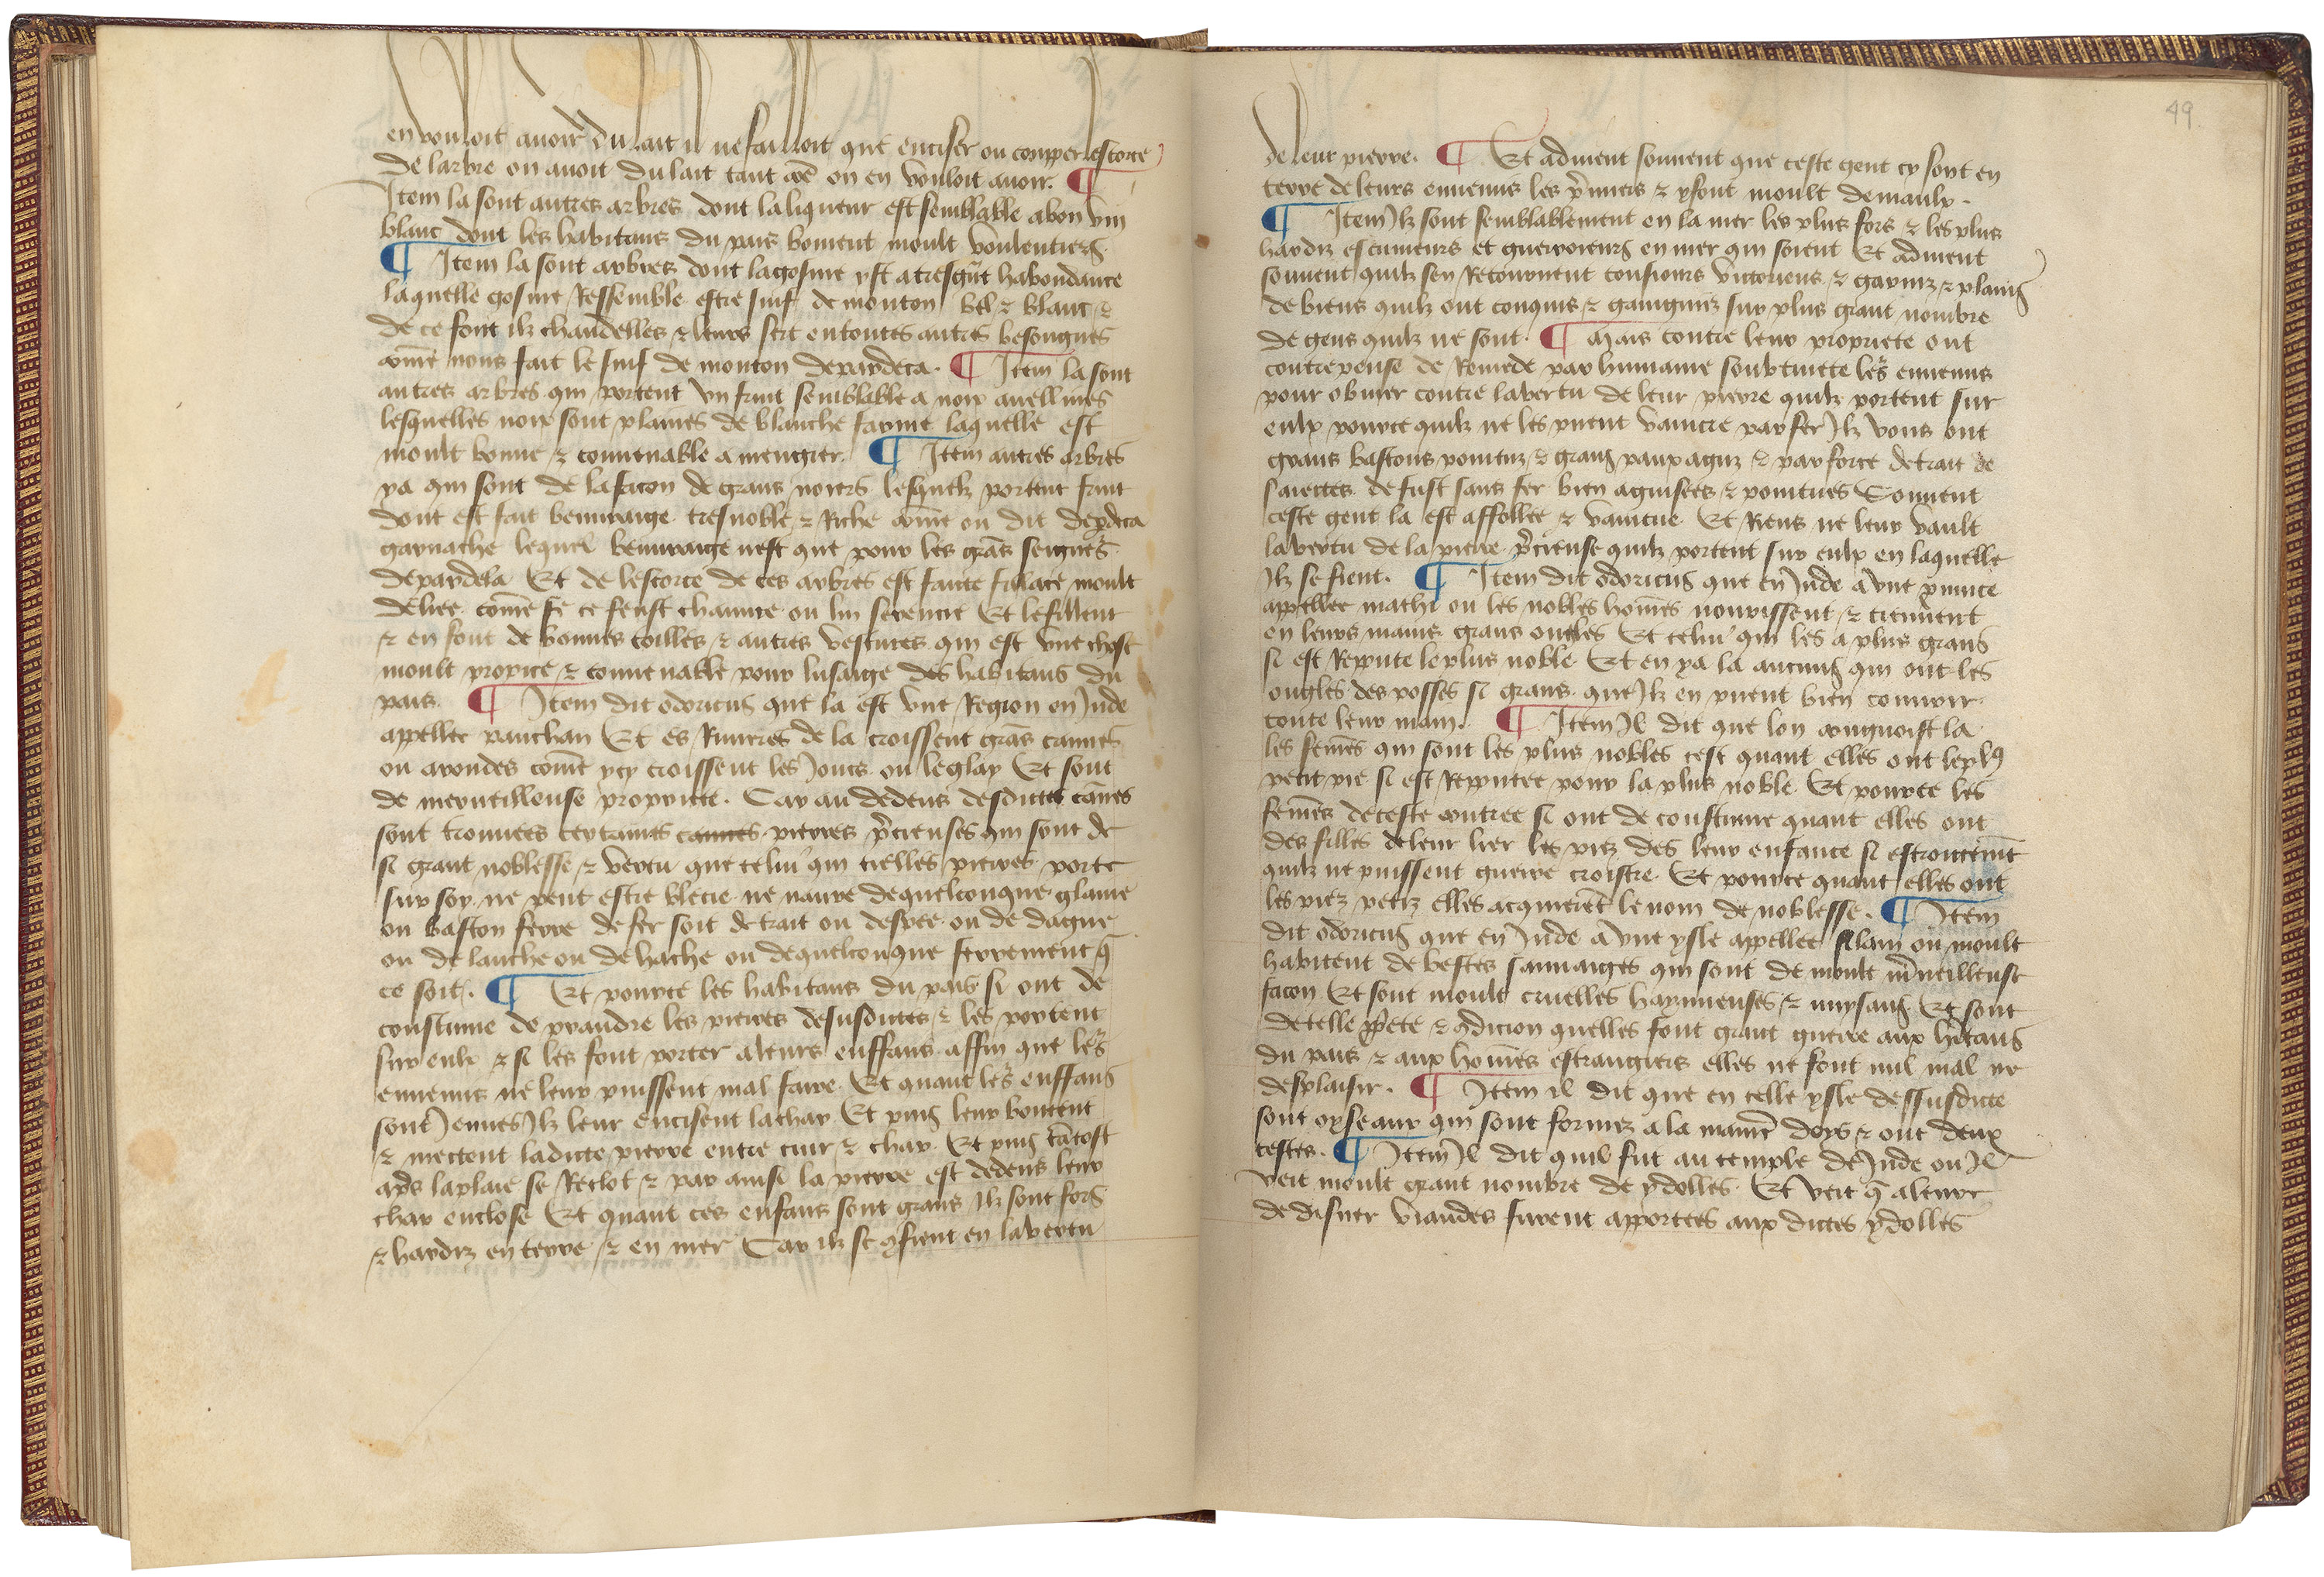 en vouloit avoir du lait il ne failloit que enciser ou coupper lescorce
de larbre on avoit du lait tant cōē on en vouloit avoir. ¶
Item la sont autres arbres dont la liqueur est semblable a bon vin
blanc dont les habitans du pais boivent moult voulentiers
¶ Item la sont arbres dont la gosme yst a tresgnt habondance
laquelle gosme Ressemble estre suif de mouton bel & blanc &
de ce font ilz chandelles & leurs sert en toutes autres besongnes
cōme nous fait le suif de mouton depardeca. ¶ Item la sont
autres arbres qui portent un fruit semblable a noix avellines
lesquelles noix sont plaines de blanche farine laquelle est
moult bonne & convenable a mengier. ¶ Item autres arbres
ya qui sont de la facon de grans noiers lesquelz portent fruit
dont est fait beuvraige tresnoble & Riche cōme on dit depdeca
garnache lequel beuvraige nest que pour les grās seigneˢ
depardela Et de lescorce de ces arbres est faicte filace moult
deliee cōme se ce feust chanvre ou lin serencie Et le fillent
& en font de bonnes toilles & autres vestures qui est une chose
moult propice & convenable pour lusaige des habitans du
pais. ¶ Item dit odoricus que la est une Region en Inde
appellee panchan Et es Rivieres de la croissent grās cannes
ou arondes cōme ycy croissent les Joncs ou le glay Et sont
de merveilleuse propriete. Car au dedens desdictes cānes
sont trouvees certaines cannes pierres pcieuses qui sont de
si grant noblesse & vertu que celui qui telles pierres porte
sur soy ne peut estre blecie ne navre de quelconque glaive
ou baston ferre de fer soit de trait ou despee ou de dague
ou de lance ou de hache ou de quelconque ferrement q̄
ce soit. ¶ Et pource les habitans du pais si ont de
coustume de prandre les pierres desusdictes & les portent
sur eulx & si les font porter a leurs enffans affin que leˢ
ennemis ne leur puissent mal faire. Et quant leˢ enffans
sont Jeunes Ilz leur encisent la char Et puis leur boutent
& mectent ladicte pierre entre cuir & char Et puis tātost
apˢ la plaie se Reclot & par ainsi la pierre est dedens leur
char enclose Et quant ces enfans sont grans Ilz sont fors
& hardiz en terre & en mer Car ilz se 9fient en la vertu
de leur pierre. ¶ Et advient souvent que ceste gent cy sont en
terre de leurs ennemis les pmiers & y font moult de maulx.
¶ Item Ilz sont semblablement en la mer les plus fors & les plus
hardiz escumeurs et guerroieurs en mer qui soient Et advient
souvent quilz sen Retournent tousiours victoriens & garniz & plains
de biens quilz ont conquis & gaingniz sur plus grant nombre
de gens quilz ne sont. ¶ Mais contre leur propriete ont
contrepense de Remede par humaine soubtivete leˢ ennemis
pour obvier contre la vertu de leur pierre quilz portent sur
eulx pource quilz ne les puent vaincre par fer Ilz vous ont
grans bastons pointuz & grans paux aguz & par force de trait de
saiectes de fust sans fer bien aguisees & pointues Souvent
ceste gent la est affollee & vaincue Et Riens ne leur vault
la vertu de la pierre pcieuse quilz portent sur eulx en laquelle
Ilz se fient. ¶ Item dit odoricus que en Inde a une pvince
appellee mathi ou les nobles hōmes nourissent & tiennent
en leurs mains grans ongles Et celui qui les a plus grans
si est Reppute le plus noble Et en ya la aucuns qui ont les
ongles des posses si grans que Ilz en puent bien couvrir
toute leur main. ¶ Item Il dit que lon congnoist la
les femēs qui sont les plus nobles cest quant elles ont le pl9
petit pie si est Repputee pour la plus noble Et pource les
femēs de ceste contree si ont de coustume quant elles ont
des filles de leur lier les piez des leur enfance si estroictemēt
quilz ne puissent guerre croistre Et pource quant elles ont
les piez petiz elles acquierēt le nom de noblesse. ¶ Item
dit odoricus que en Inde a une ysle appellee silam ou moult
habitent de bestes sauvaiges qui sont de moult mveilleuse
facon Et sont moult cruelles haynneuses & nuysans Et sont
de telle ppete & 9dicion quelles font grant guerre aux hītans
du pais & aux hōmes estrangiers elles ne font nul mal ne
desplaisir. ¶ Item il dit que en celle ysle dessusdicte
sont oyseaux qui sont formez a la manīe doys & ont deux
testes. ¶ Item Il dit quil fut au temple de Inde ou Il
veit moult grant nombre de ydolles Et veit q̄ a leure
de disner viandes furent apportees aux dictes ydolles
49.